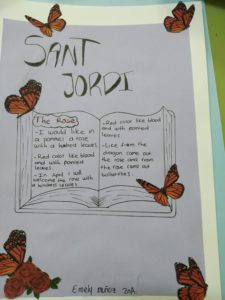 SANT
JORDI
The Rose
- I would like in
a pommes a rose
with a hundred leaves.
- Red color like blood
and with pointed
leaves.
- In April I will
welcome the rose with
a hundred leaves
- Red color like blood
and with pointed
leaves.
- Lice from the
dragon came out
the rose and from
the rose came out
butterflies.
Emely Muñoz 2nA